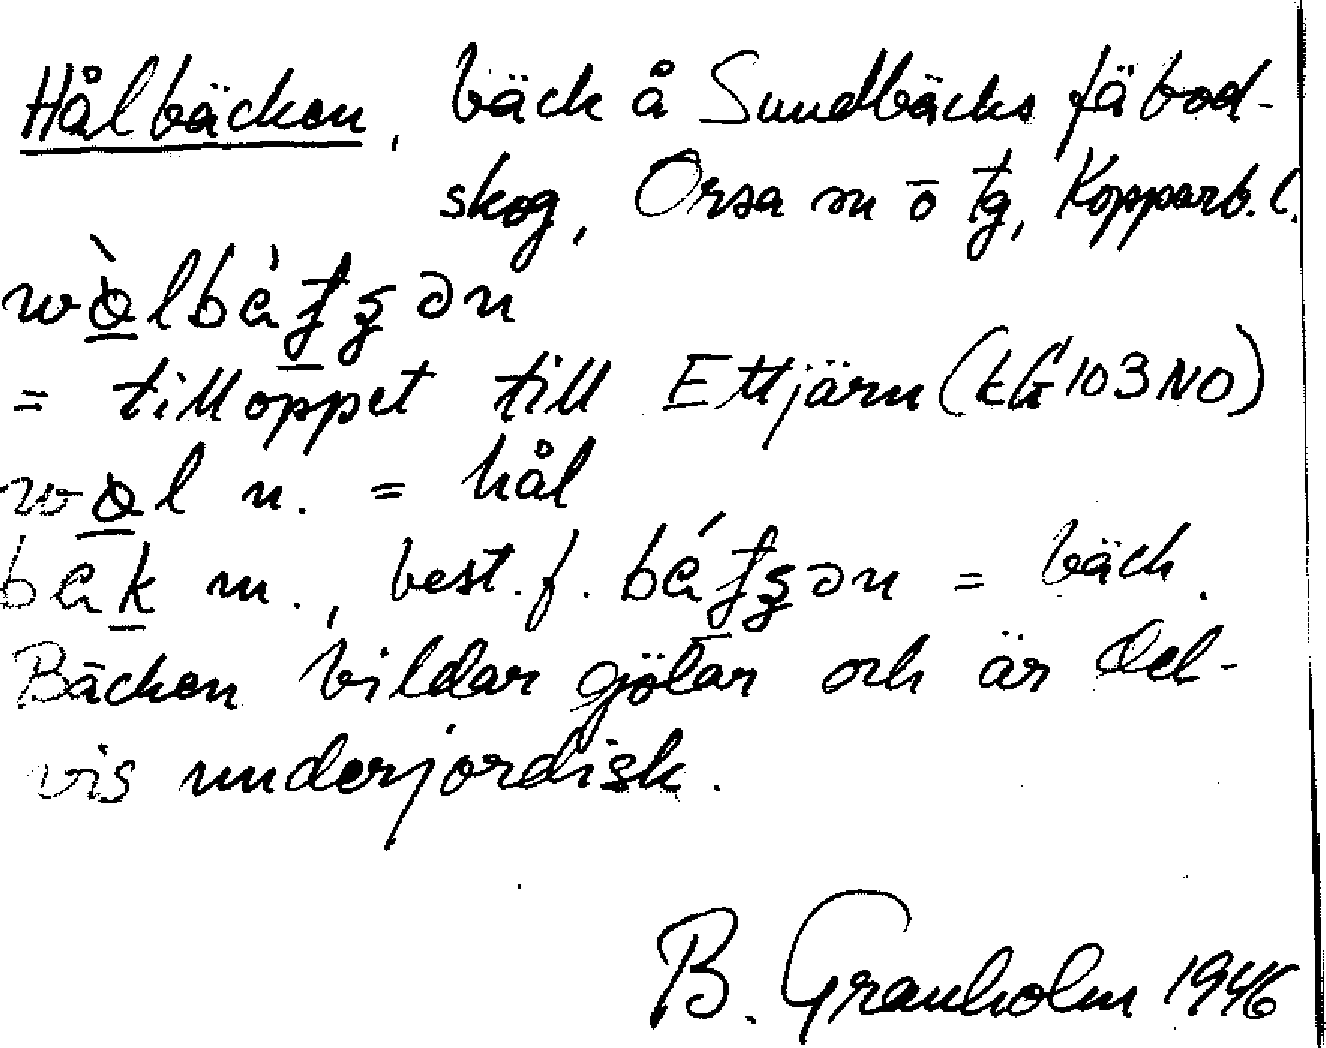 Hålbäcken, bäck å Sundbäcks fäbod-
skog, Orsa sn o tg, Kopparb. l.
= tilloppet till Ettjärn (EG 103 NO)
n. = hål
m., best. f. = bäck.
Bäcken bildar gölar och är del-
vis underjordisk.
B. Granholm 1946